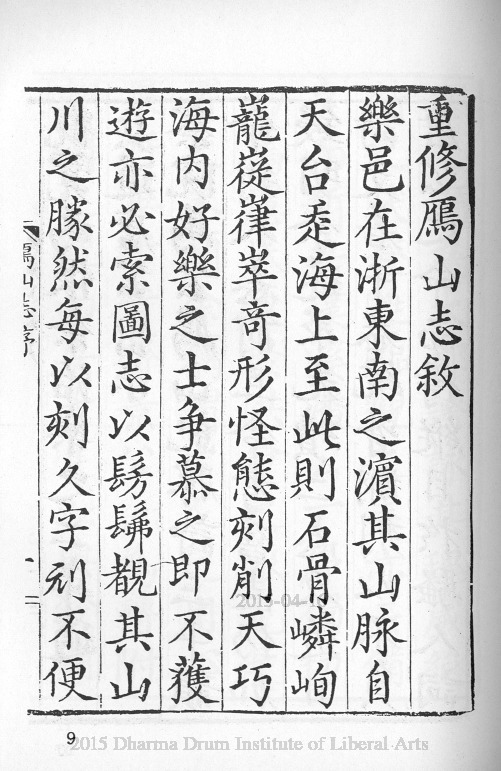 重修鴈山志敘
樂邑在浙東南之濵其山脉自
天台走海上至此則石骨嶙峋
巃嵸嵂崒竒形怪態刻削天巧
海内好樂之士争慕之即不獲
遊亦必索圖志以髣髴覩其山
川之勝然每以刻久字刓不便
鴈山志序
一
9
2015 Dharma Drum Institute of Liberal Arts